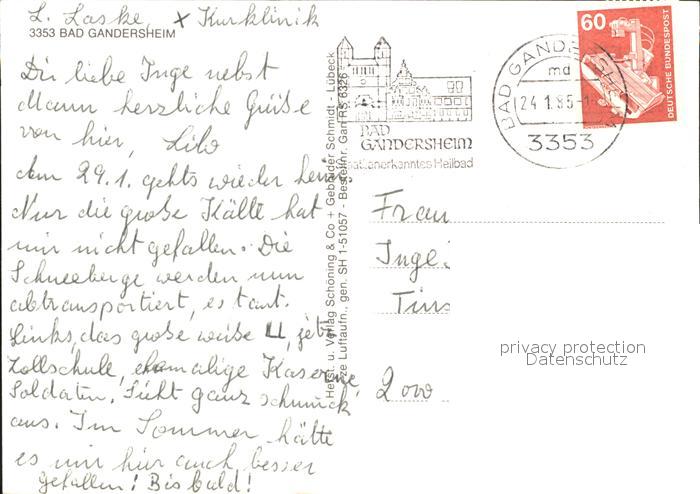 L. Laske, x Kurklinik
3353 BAD GANDERSHEIM
Dir liebe Inge nebst
Mann herzliche Grüße
von hier, Lilo
Am 29.1. gehts wieder heim.
Nur die große Kälte hat
mir nicht gefallen. Die
Schneeberge werden nun
abtransportiert, es taut.
Links, das große weiße U, jetzt
Zollschule, ehemalige Kaserne,
Soldaten. Sieht ganz schmuck
aus. Im Sommer hätte
es mir hier auch besser
gefallen! Bis bald!
Herst. u. Verlag Schöning & Co + Gebrüder Schmidt - Lübeck
Luftaufn., gen. SH 1-51057 - Bestellnr. Gan RS 6326
BAD
GANDERSHEIM
anerkanntes Heilbad
BAD GANDERSHEIM
md
24.1.85-1
3353
60
DEUTSCHE BUNDESPOST
Frau
Inge
Tins
2000
privacy protection
Datenschutz